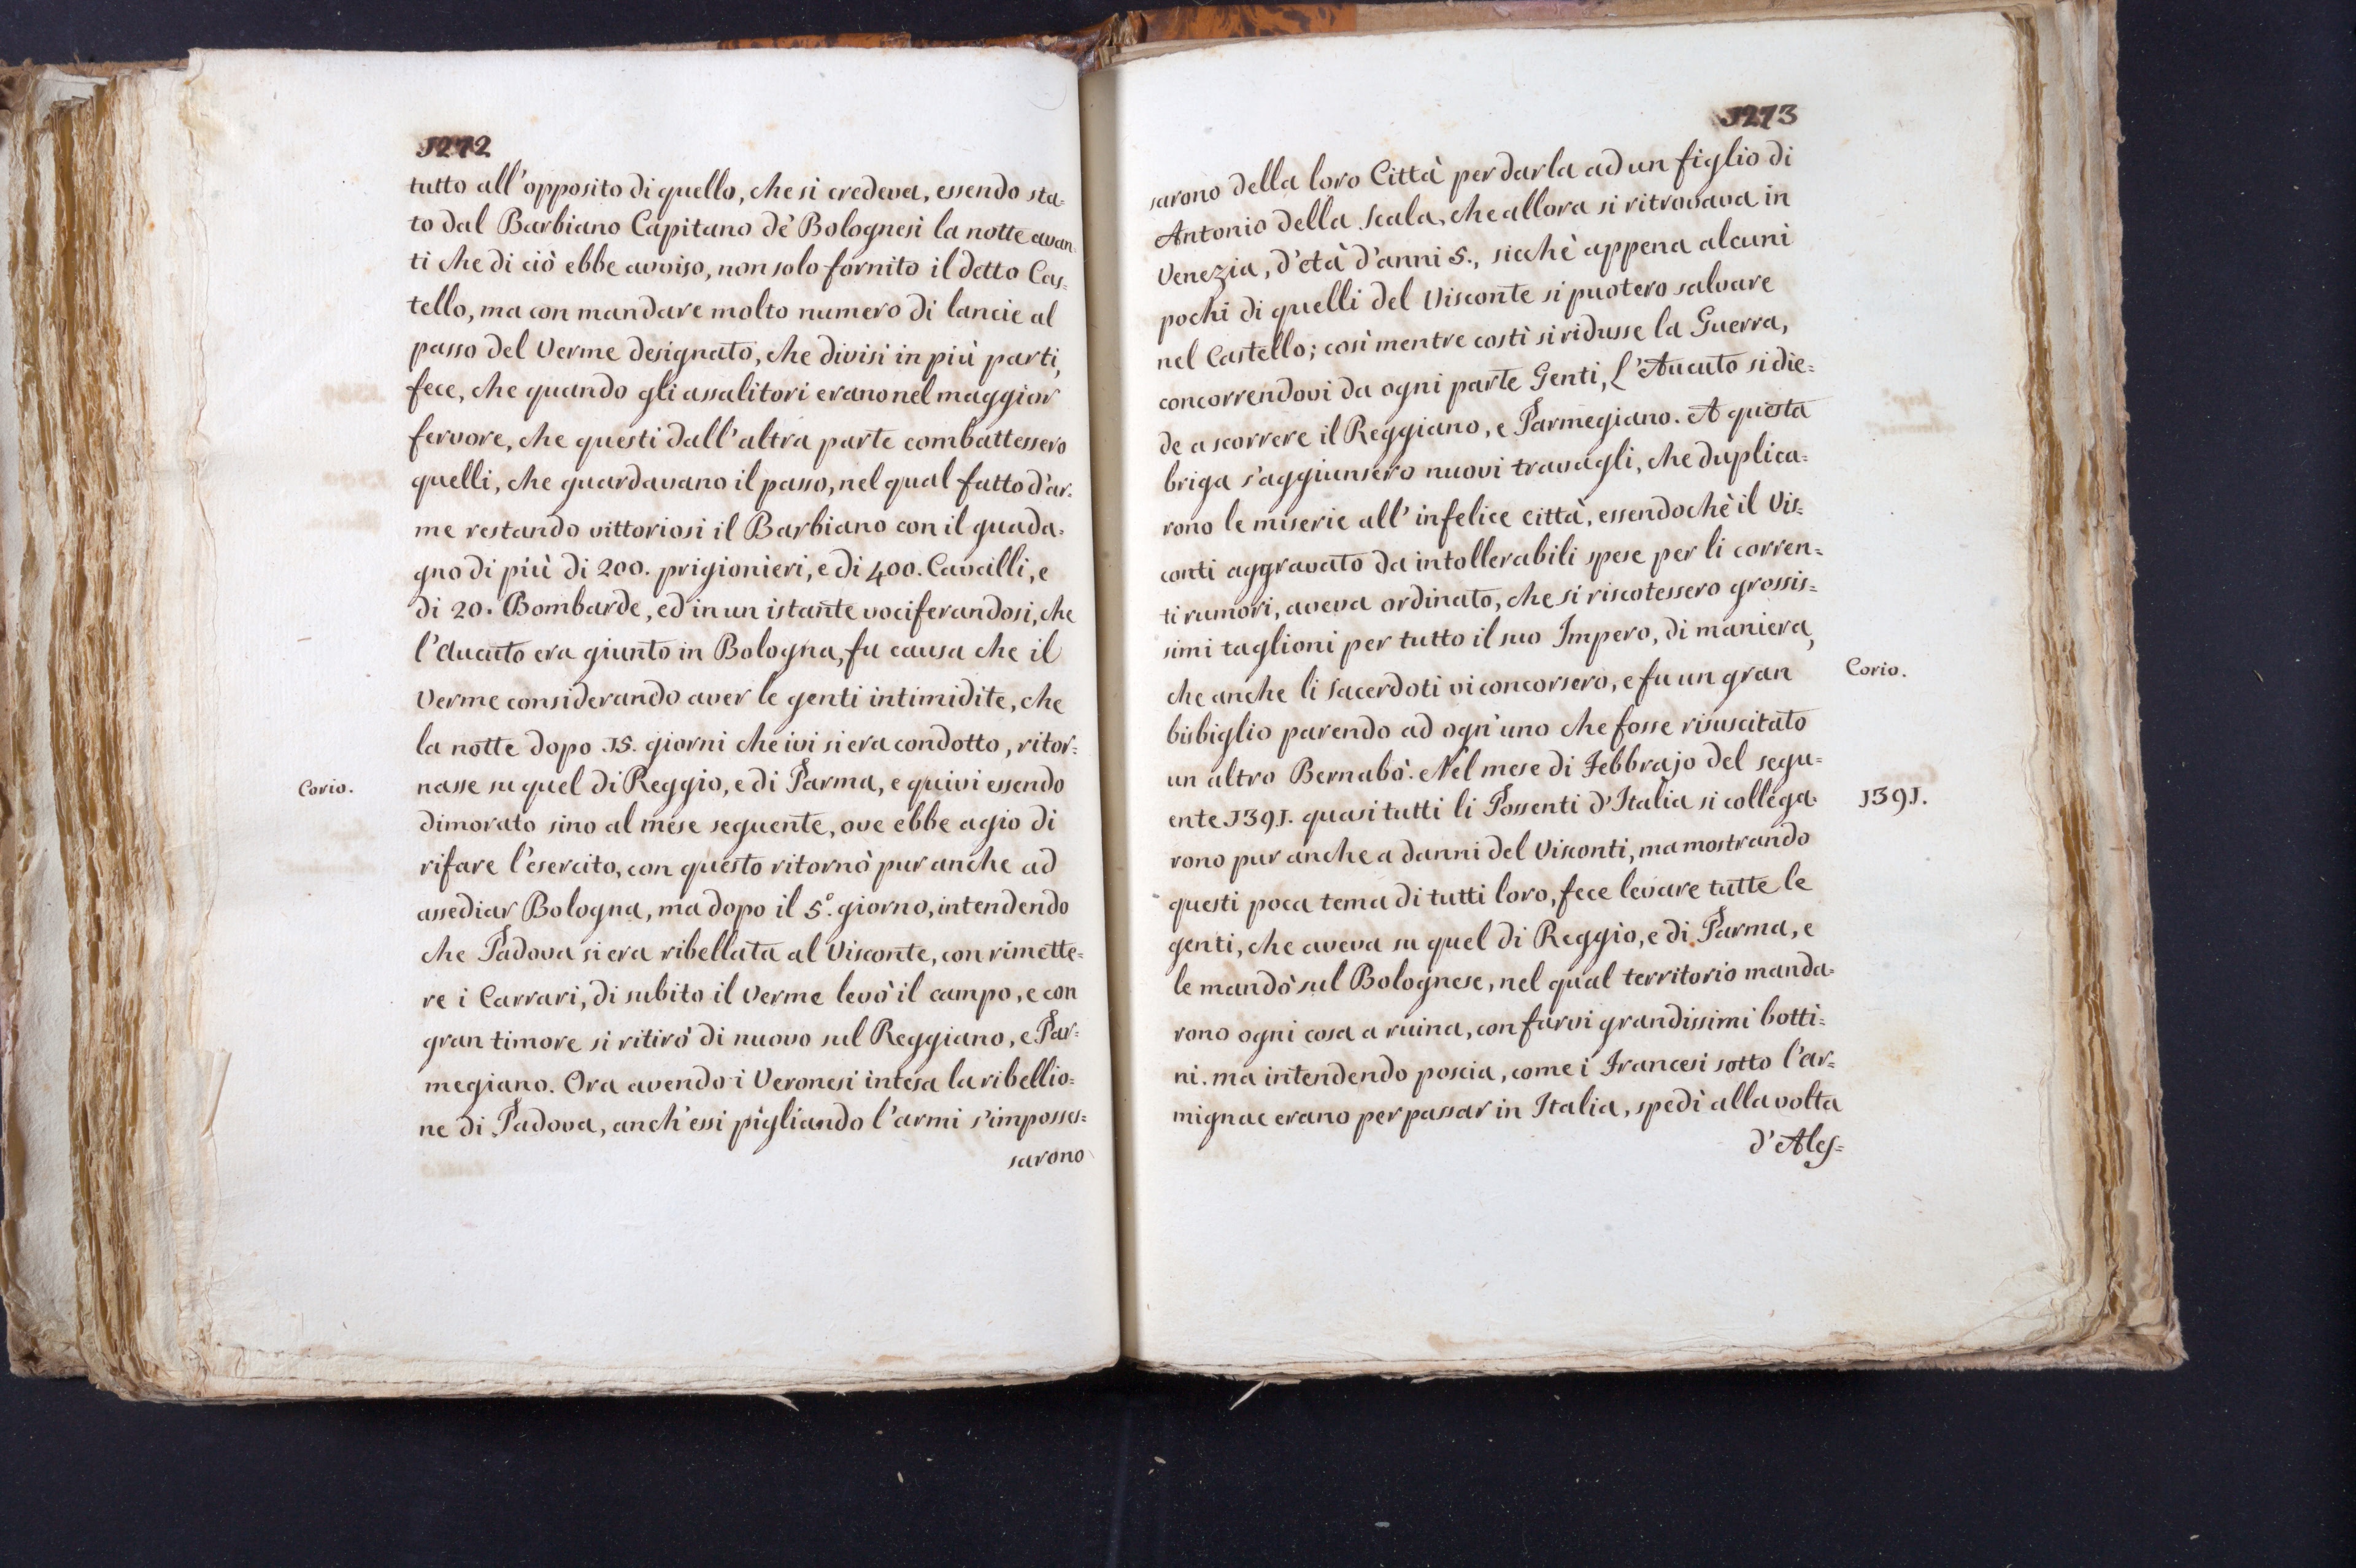 1272
tutto all'opposito di quello, che si credeva, essendo sta=
to dal Barbiano Capitano dè Bolognesi la notte avan
ti che di ciò ebbe avviso, non solo fornito il detto Cas=
tello, ma con mandare molto numero di lancie al
passo del Verme designato, che divisi in più parti,
fece, che quando gli assalitori erano nel maggior
fervore, che questi dall'altra parte combattessero
quelli, che guardavano il passo, nel qual fatto d'ar=
me restando vittoriosi il Barbiano con il guada=
gno di più di 200. prigionieri, e di 400. Cavalli, e
di 20. Bombarde, ed in un istante vociferandosi, che
l'Aucuto era giunto in Bologna, fu causa che il
Verme considerando aver le genti intimidite, che
la notte dopo 15. giorni che ivi si era condotto, ritor=
Corio.
nasse su quel di Reggio, e di Parma, e quivi essendo
dimorato sino al mese seguente, ove ebbe agio di
rifare l'esercito, con questo ritornò pur anche ad
assediar Bologna, ma dopo il 5.º giorno, intendendo
che Padova si era ribellata al Visconte, con rimette=
re i Carrari, di subito il Verme levò il campo, e con
gran timore si ritirò di nuovo sul Reggiano, e Par=
megiano. Ora avendo i Veronesi intesa la ribellio=
ne di Padova, anch'essi pigliando l'armi s'imposses=
sarono
1273
sarono della loro Città per darla ad un figlio di
Antonio della Scala, che allora si ritrovava in
Venezia, d'età d'anni 5., sicchè appena alcuni
pochi di quelli del Visconte si puotero salvare
nel Castello; così mentre costì si ridusse la Guerra,
concorrendovi da ogni parte Genti, L'Aucuto si die=
de a scorrere il Reggiano, e Parmegiano. A questa
briga s'aggiunsero nuovi travagli, che duplica=
rono le miserie all'infelice città, essendochè il Vis=
conti aggravato da intollerabili spese per li corren=
ti rumori, aveva ordinato, che si riscotessero grossis=
simi taglioni per tutto il suo Impero, di maniera,
che anche li Sacerdoti vi concorsero, e fu un gran
Corio.
bisbiglio parendo ad ogn'uno che fosse risuscitato
un altro Bernabò. Nel mese di Febbrajo del segu=
ente 1391. quasi tutti li Possenti d'Italia si collega=
1391.
rono pur anche a danni del Visconti, ma mostrando
questi poca tema di tutti loro, fece levare tutte le
genti, che aveva su quel di Reggio, e di Parma, e
le mandò sul Bolognese, nel qual territorio manda=
rono ogni cosa a ruina, con farvi grandissimi botti=
ni. ma intendendo poscia, come i Francesi sotto l'ar=
mignac erano per passar in Italia, spedì alla volta
d'Ales=